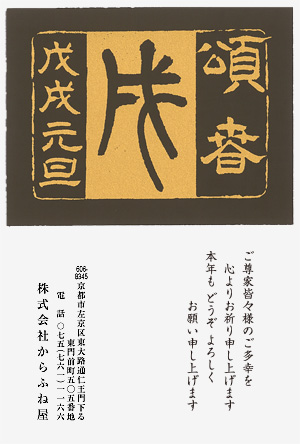 頌春
戌
戊戌元旦
ご尊家皆々様のご多幸を
心よりお祈り申し上げます
本年も どうぞ よろしく
お願い申し上げます
606-8345 京都市左京区東大路通仁王門下る
東門前町五〇五番地
電話 〇七五(七六一)一一六六
株式会社からふね屋